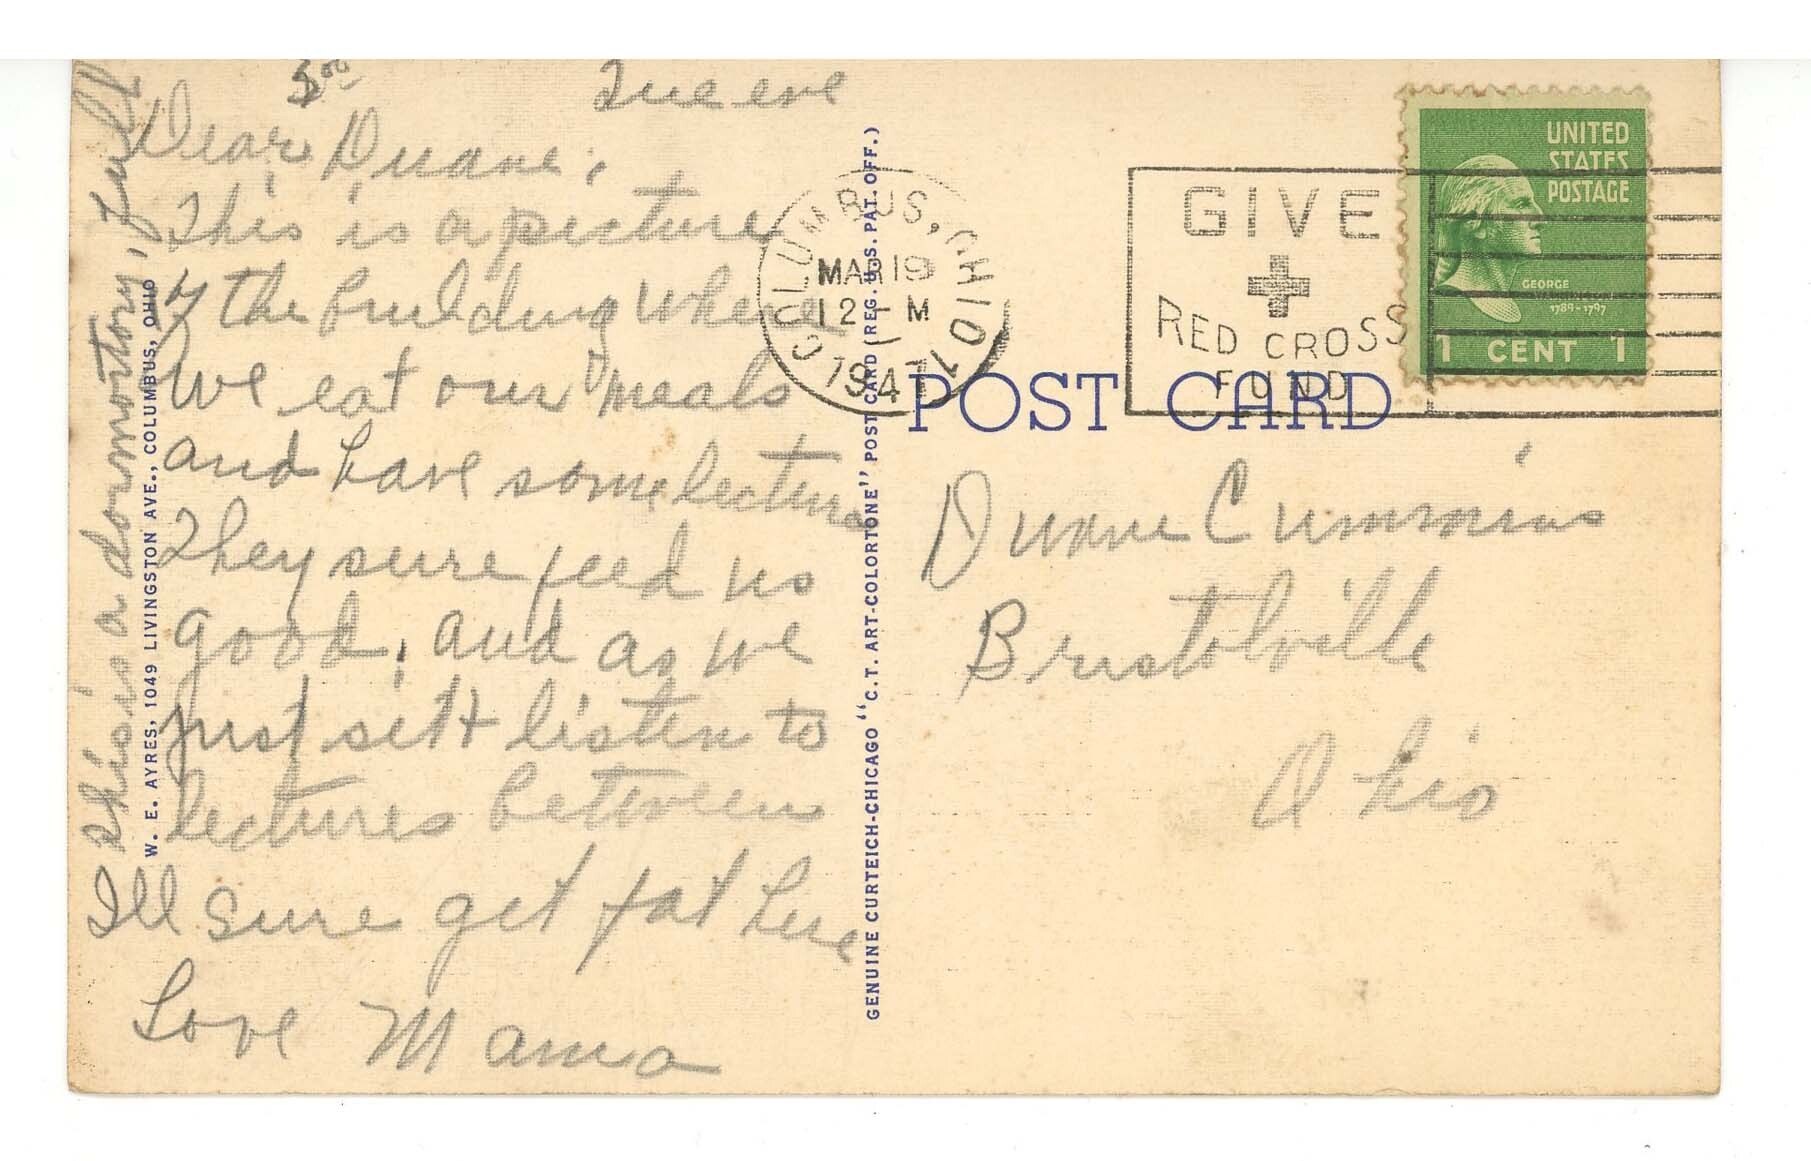 5⁰⁰
Tue eve
Dear Duane,
This is a picture
of the building where
we eat our meals
and have some lectures
They sure feed us
good, and as we
just sit & listen to
lectures between
I'll sure get fat here
Love Mama
This is a dormitory,
W. E. AYRES, 1049 LIVINGSTON AVE., COLUMBUS, OHIO
GENUINE CURTEICH-CHICAGO "C.T. ART-COLORTONE" POST CARD (REG. U.S. PAT. OFF.)
COLUMBUS, OHIO
MAR 19
12 - M
1947
GIVE
RED CROSS
FUND
UNITED
STATES
POSTAGE
GEORGE
WASHINGTON
1789-1797
1 CENT 1
POST CARD
Duane Cummins
Bristolville
Ohio